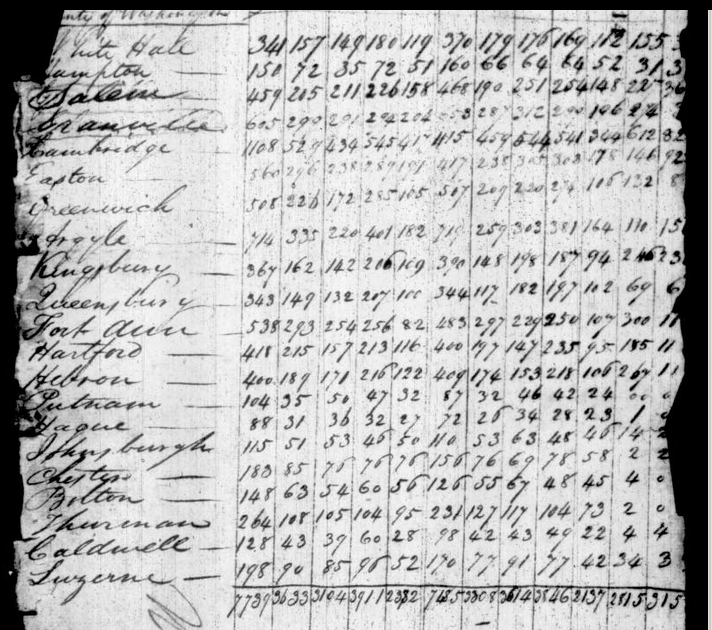 nty of Washington
White Hall 341 157 149 180 119 370 179 176 169 112 155
Hampton 150 72 35 72 51 160 66 64 64 52 31 3
Salem 459 215 211 226 158 468 190 251 254 148 36
Granville 605 290 291
Cambridge 1108 529 434 545 417 1115 459 544 541 344 612 32
Easton 560 296 238 289 191 417 238 305 303 178 146 92
Greenwich 508 226 172 285 105 507 209 220 274 106 132 8
Argyle 714 335 220 401 182 719 259 303 381 164 110 15
Kingsbury 367 162 142 206 109 390 148 198 187 94 246 23
Queensbury 343 149 132 207 100 344 117 182 197 102 69 6
Fort Ann 538 293 254 256 82 483 297 229 250 107 300 11
Hartford 418 215 157 213 116 400 197 147 235 95 185 11
Hebron 400 189 171 216 122 409 174 153 218 106 207 11
Putnam 104 35 50 47 32 87 32 46 42 24 00 0
Hague 88 31 36 32 27 72 26 34 28 23 1 0
Johnsburgh 115 51 53 46 50 110 53 63 48 46 14 2
Chester 183 85 76 76 76 156 76 69 78 58 2 2
Bolton 148 63 54 60 56 126 55 67 48 45 4 0
Thurman 264 108 105 104 95 231 127 117 104 73 2 0
Caldwell 128 43 39 60 28 98 42 43 49 22 4 4
Luzerne 198 90 85 96 52 170 77 91 77 42 34 3
7739 3633 3104 3911 2382 7485 3308 3614 3846 2137 2815 315